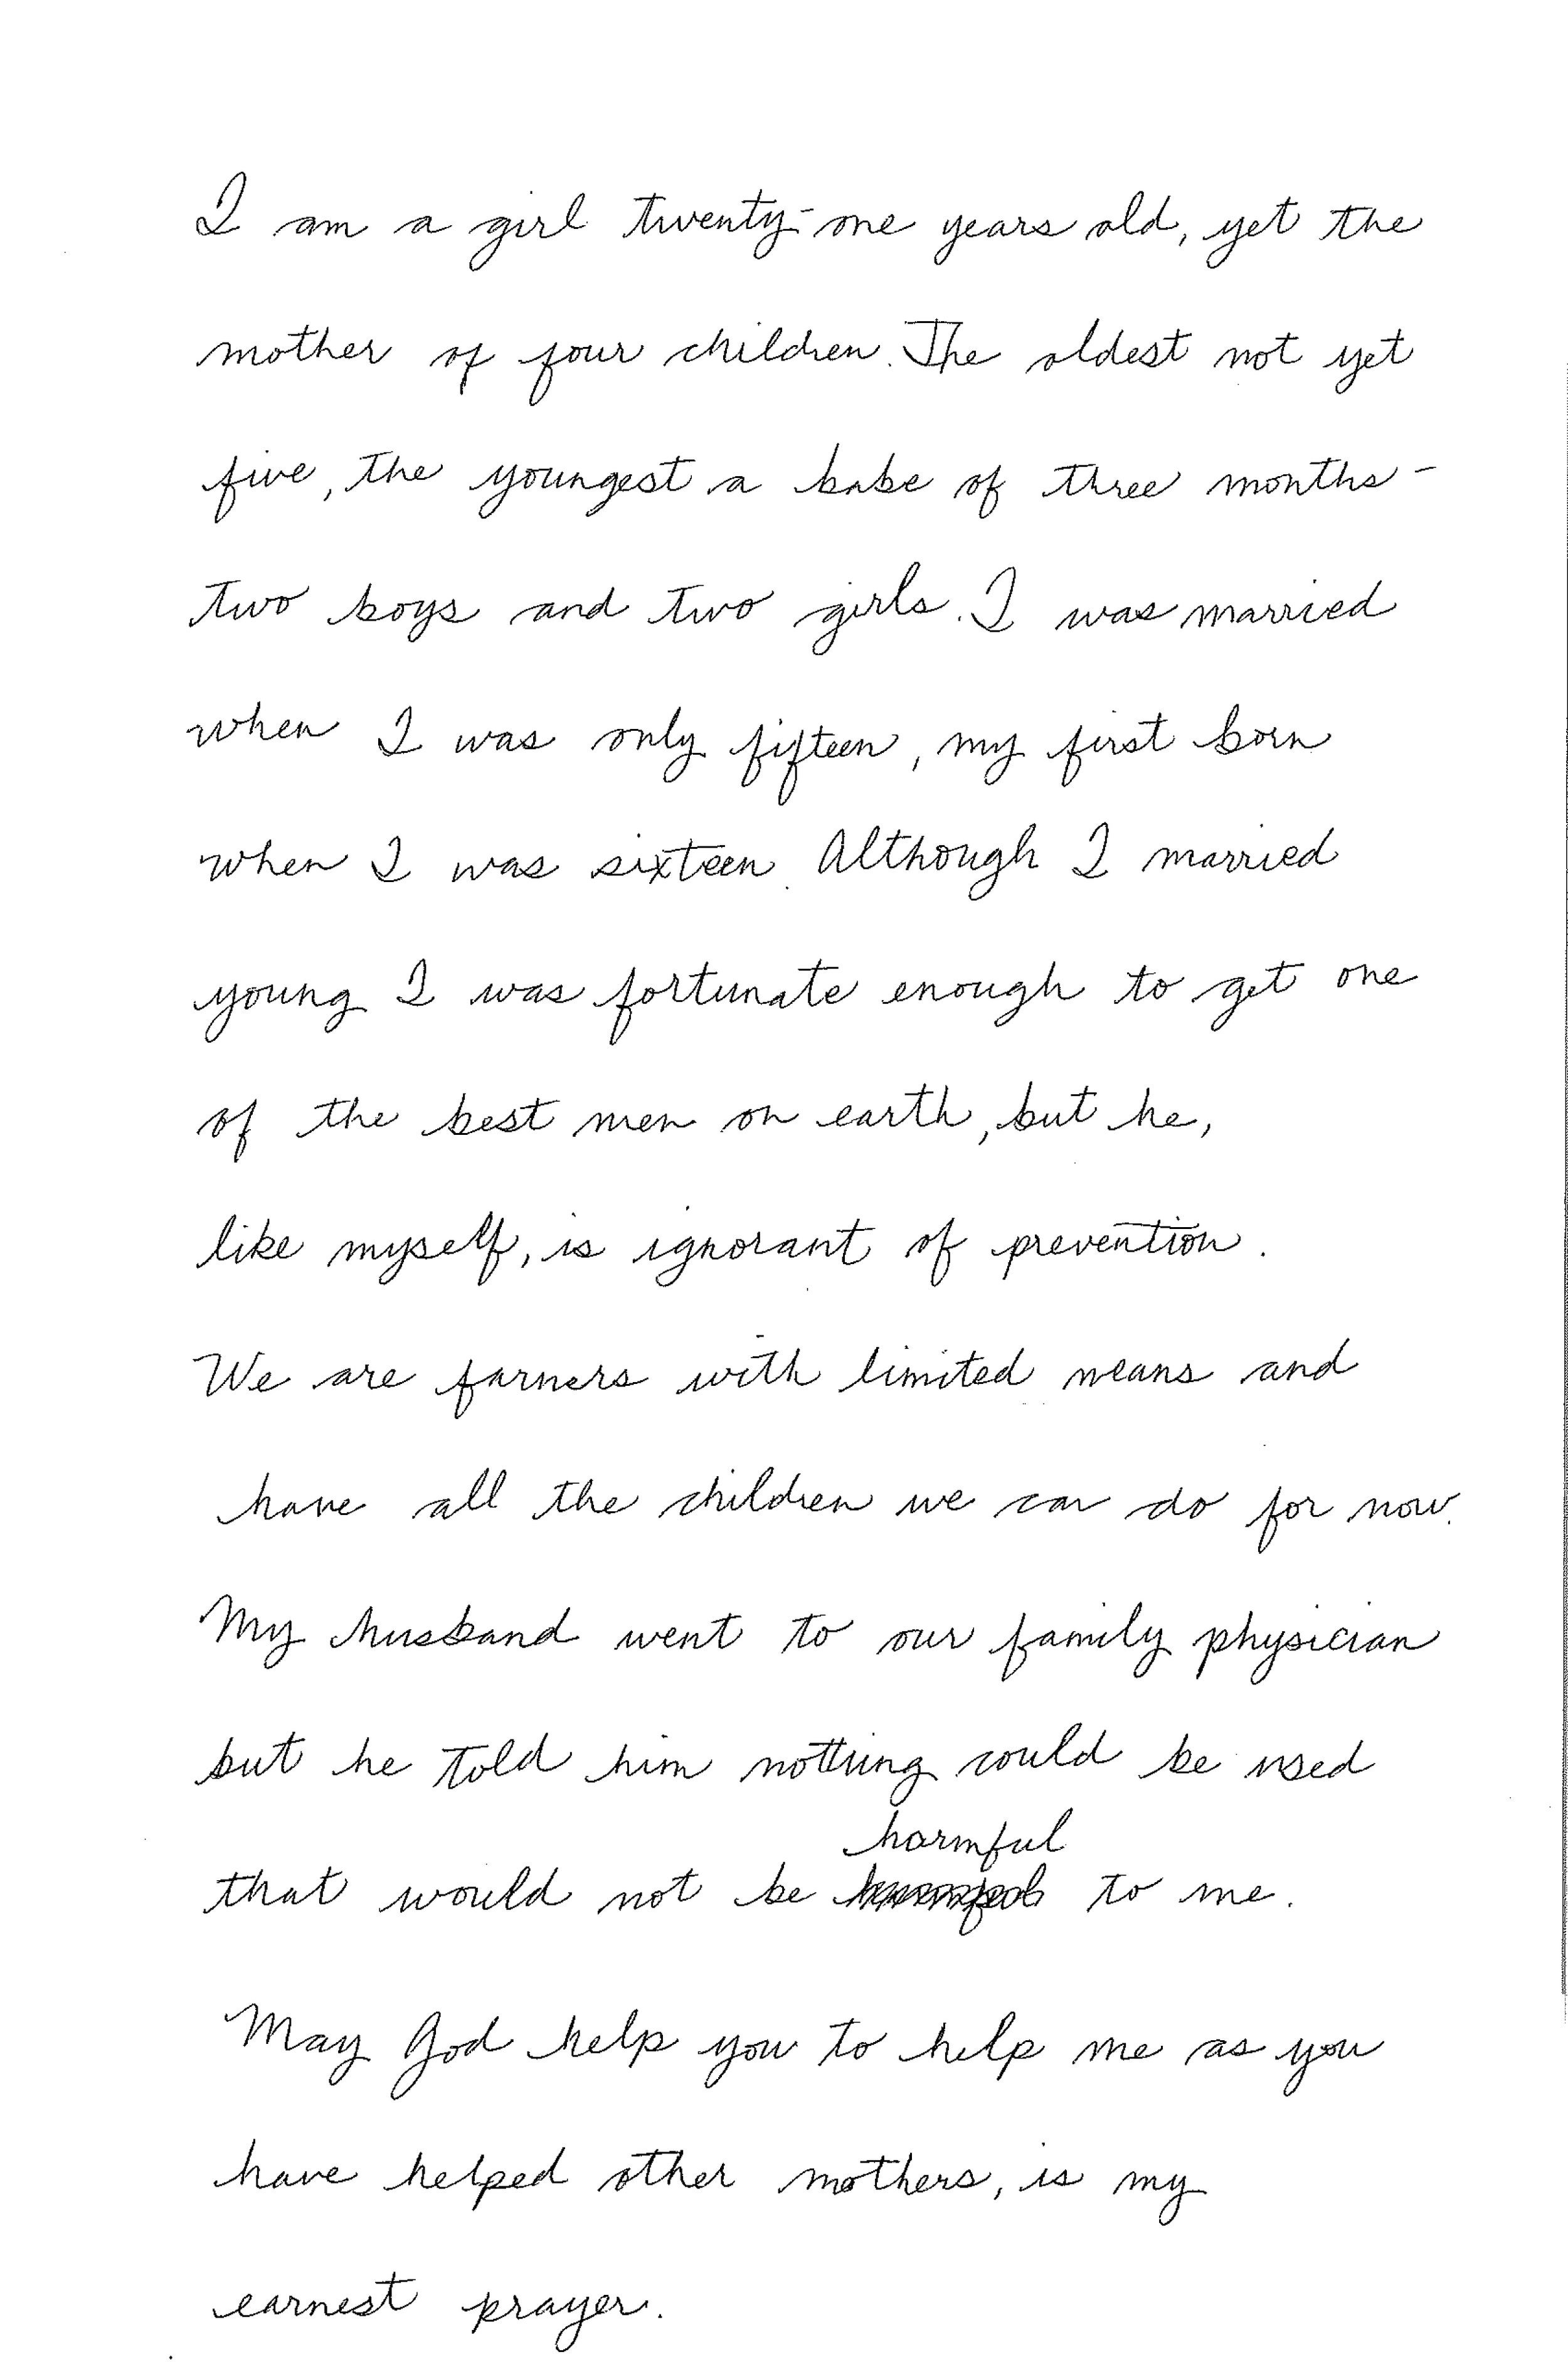 I am a girl twenty-one years old, yet the
mother of four children. The oldest not yet
five, the youngest a babe of three months -
two boys and two girls. I was married
when I was only fifteen, my first born
when I was sixteen. Although I married
young I was fortunate enough to get one
of the best men on earth, but he,
like myself, is ignorant of prevention.
We are farmers with limited means and
have all the children we can do for now.
My husband went to our family physician
but he told him nothing could be used
harmful
that would not be to me.
May God help you to help me as you
have helped other mothers, is my
earnest prayer.